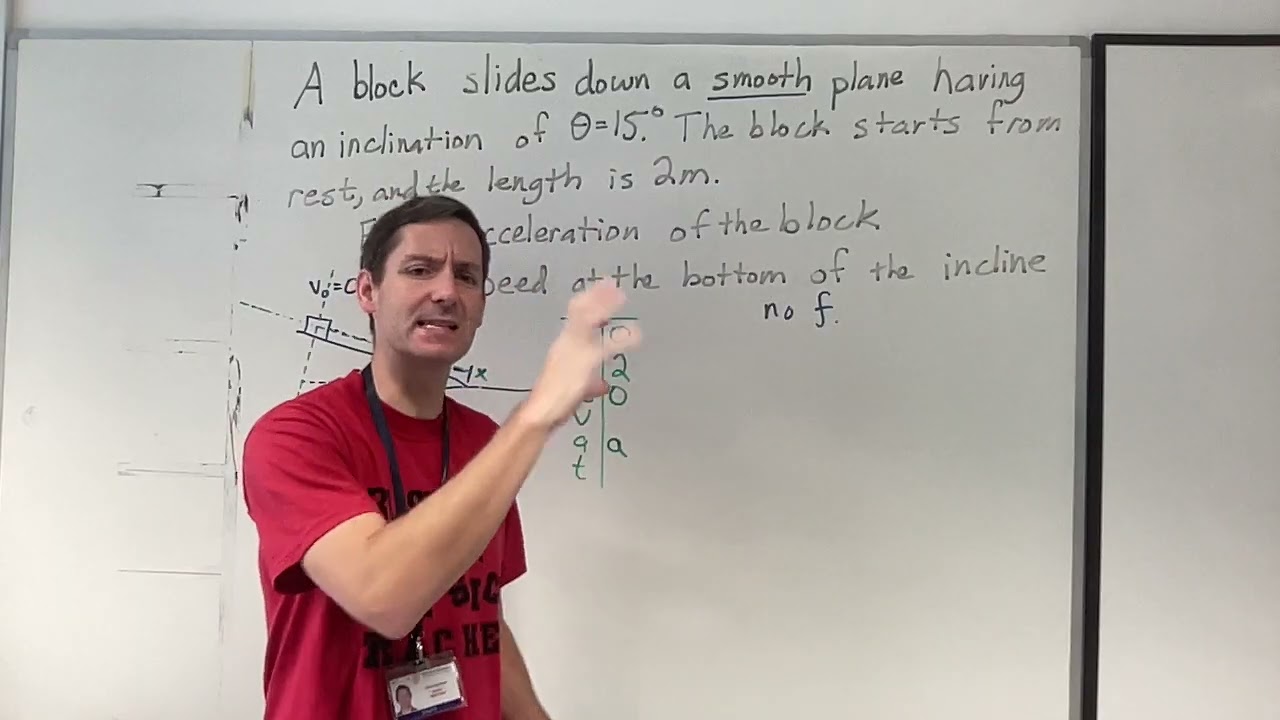 A block slides down a smooth plane having
an inclination of θ=15.° The block starts from
rest, and the length is 2m.
acceleration of the block
speed at the bottom of the incline
no f.
v₀=0
x
0
2
0
v
a a
t